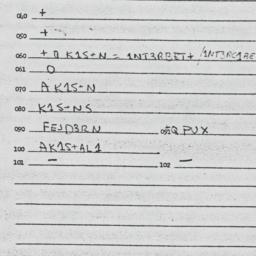 040 +
050 +
060 + O K1S+N = 1NT3RB3T+ /1NT3RC1BE
061 O
070 A K1S+N
080 K1S+NS
090 FEJD3RN 092 Q PUX
100 AK1S+AL1
101 — 102 —